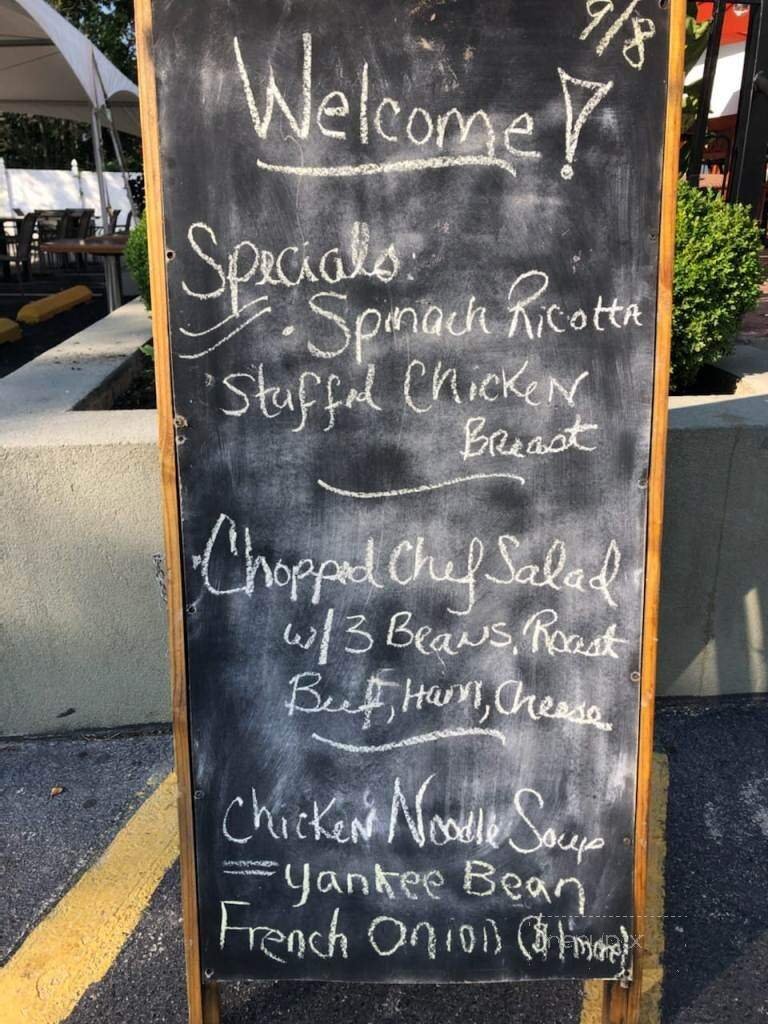 9/8
Welcome!
Specials:
• Spinach Ricotta
Stuffed Chicken
Breast
Chopped Chef Salad
w/3 Beans, Roast
Beef, Ham, Cheese
Chicken Noodle Soup
Yankee Bean
French Onion ($1 more)